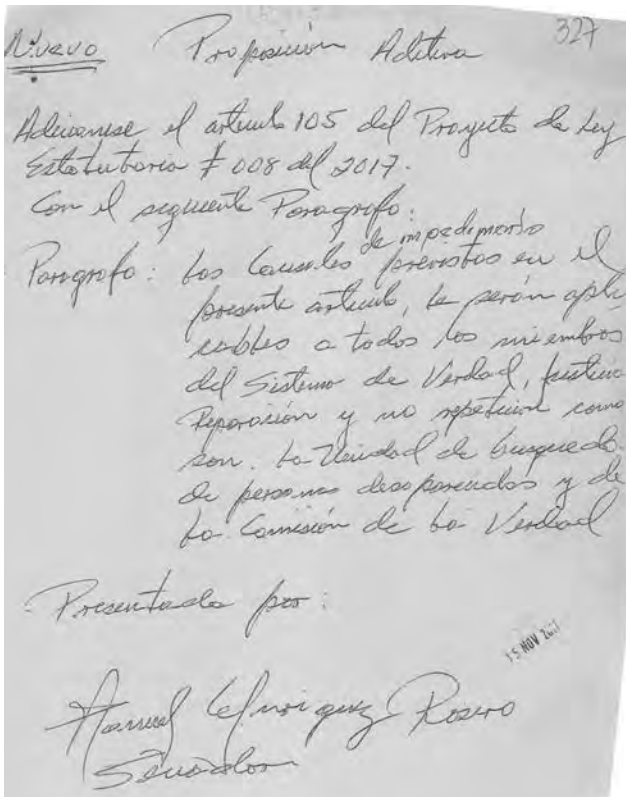 Nuevo Proposición Aditiva 327
Adicionese el articulo 105 del Proyecto de Ley
Estatutaria # 008 del 2017.
Con el siguiente Paragrafo:
Paragrafo: Las Causales de impedimento previstas en el
presente articulo, le serán apli
cables a todos los miembros
del Sistema de Verdad, justicia
Reparación y no repetición como
son. La Unidad de busqueda
de personas desaparecidas y de
La Comisión de La Verdad
Presentada por:
15 NOV
Manuel Enriquez Rosero
Senador